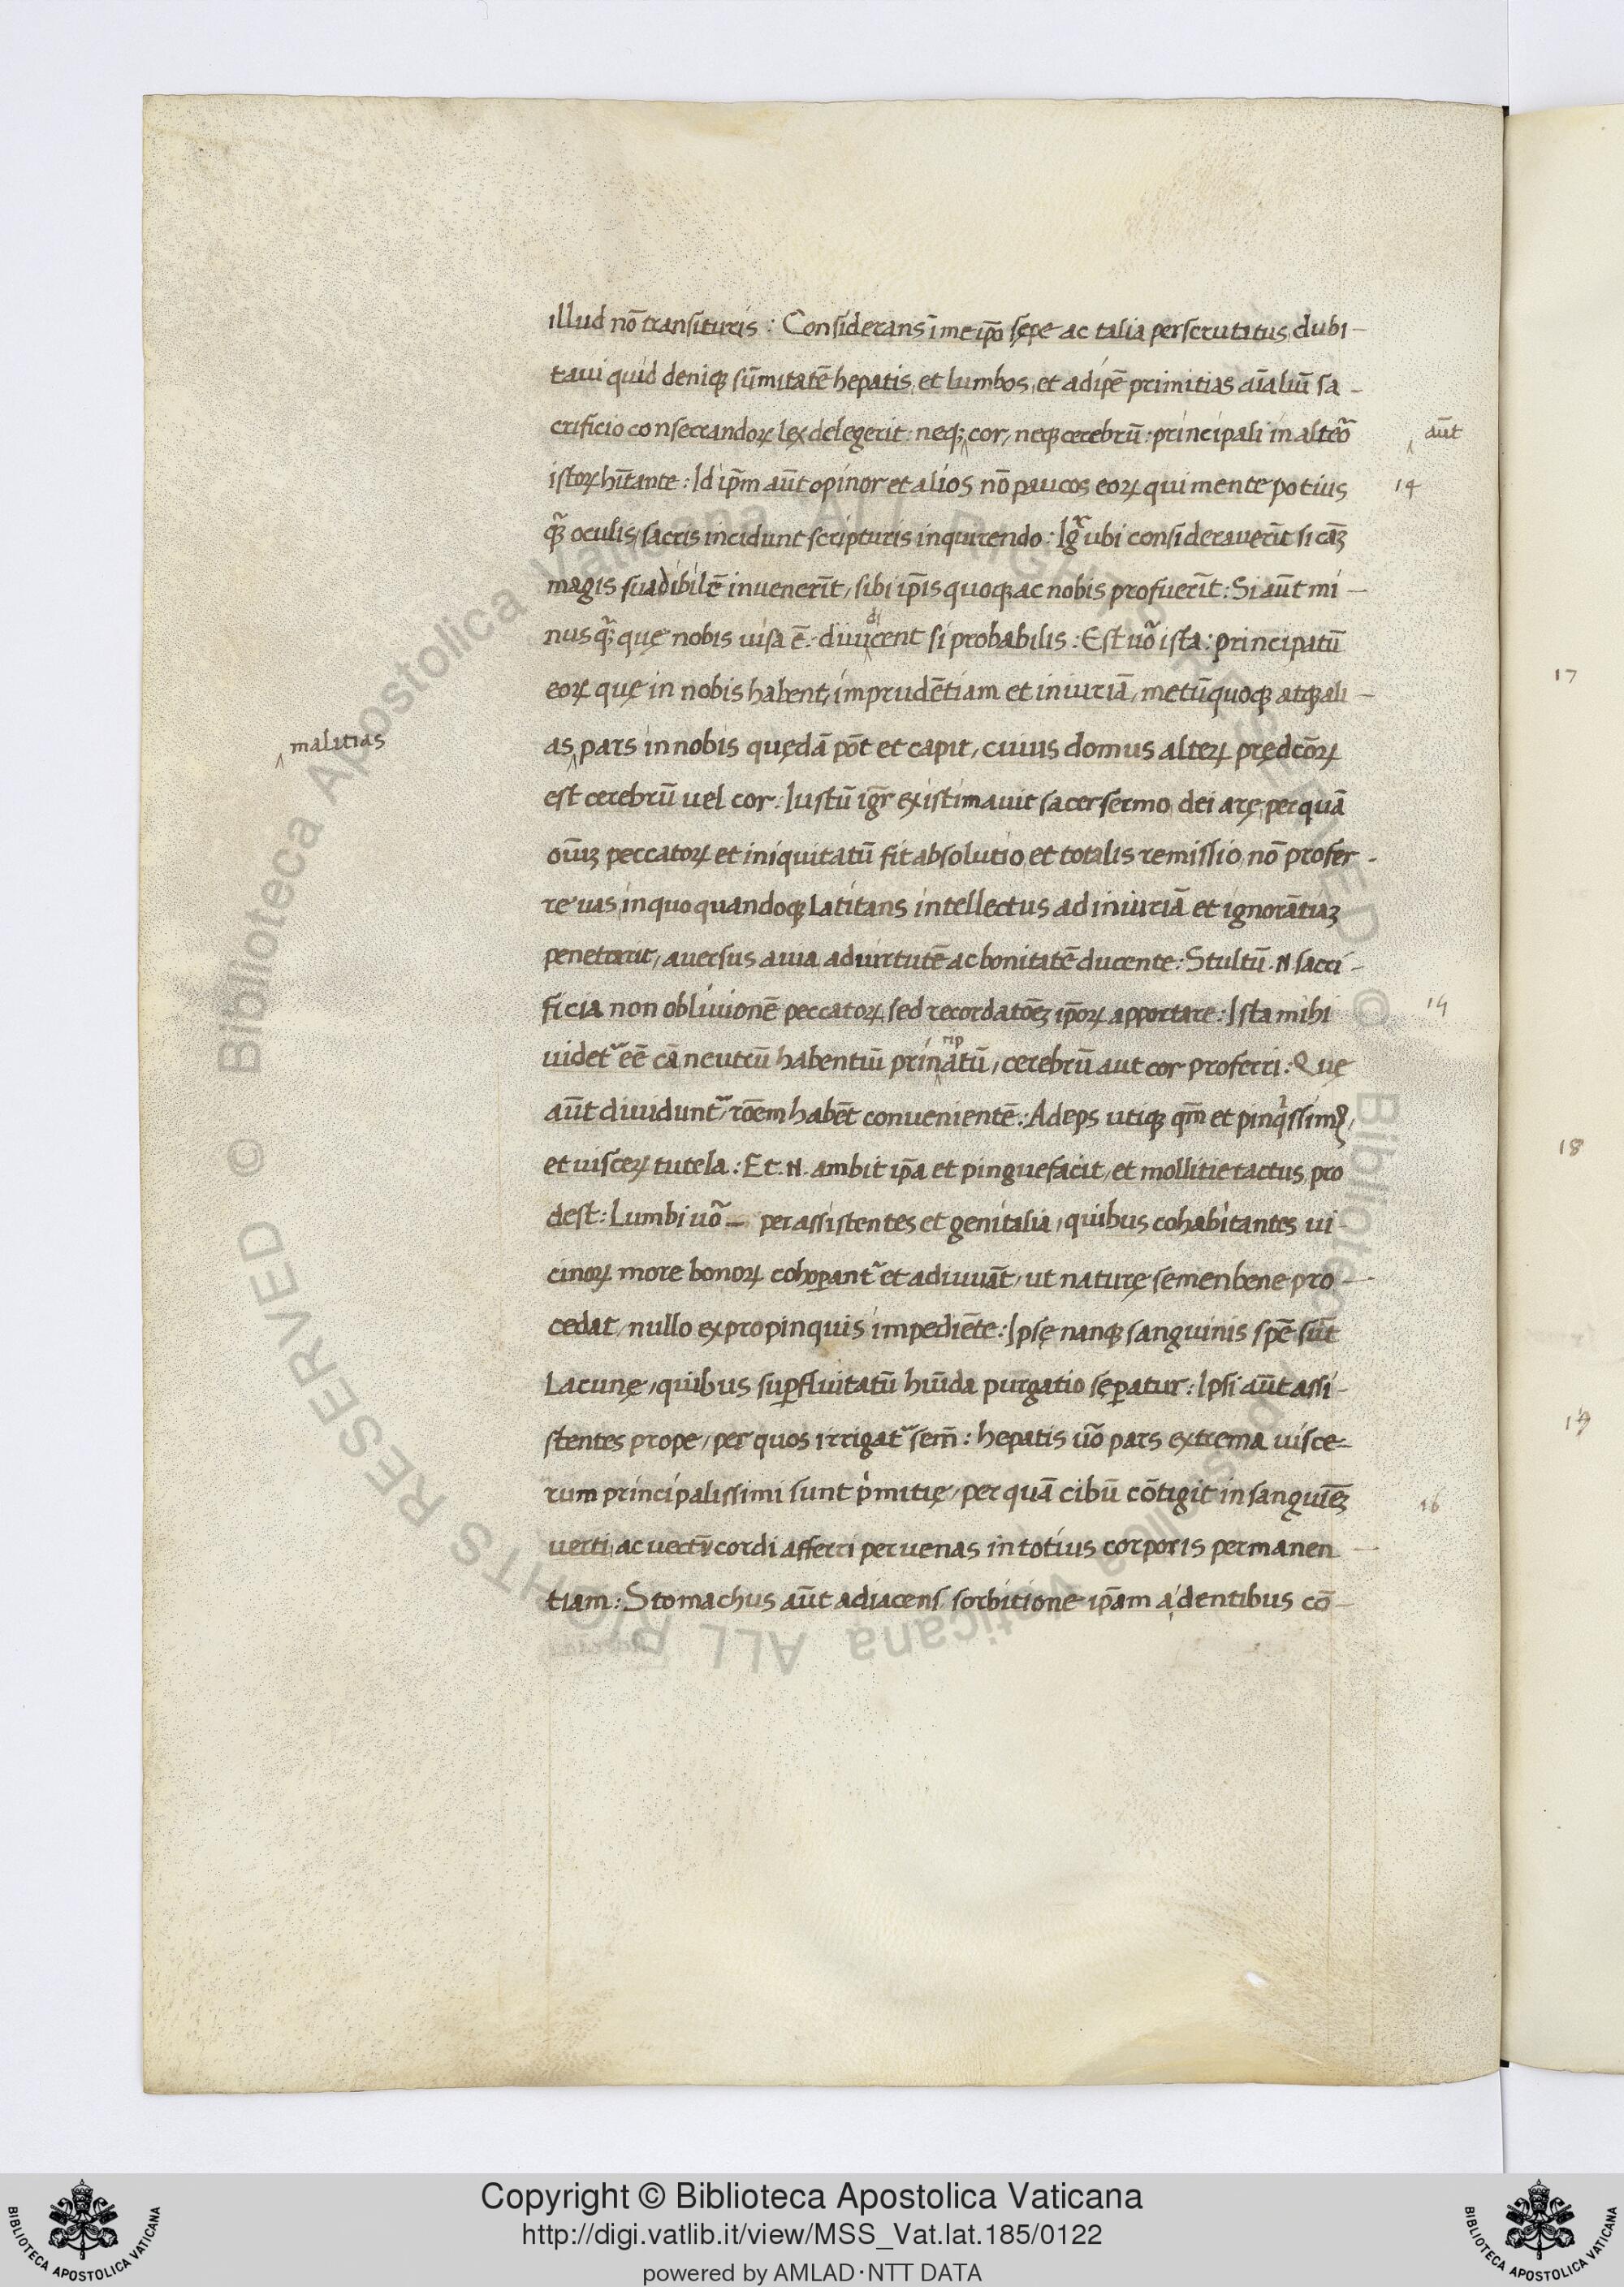 illud nō transituris : Considerans ī me ip̄o sępe ac talia perscrutatus, dubi-
taui quid deniqꝫ sūmitatē hepatis, et lumbos, et adipē primitias aīaliū sa-
crificio consecrandoꝝ lex delegerit : neqꝫ cor, neqꝫ cerebrū : principali in alteō
aūt
istoꝝ hītante : Id ip̄m aūt opinor et alios nō paucos eoꝝ qui mente potius
14
q̄ꝫ oculis, sacris incidunt scripturis inquirendo : Igr̄ ubi considerauerīt si cāꝫ
magis suadibilē inuenerīt, sibi ip̄is quoqꝫ ac nobis profuerīt : Si aūt mi-
di
nus q̄ꝫ quę nobis uisa ē : diiucent si probabilis : Est uō ista : principatū
eoꝝ quę in nobis habent, imprudētiam et iniuriā, metū quoqꝫ atqꝫ ali-
17
malitias
as, pars in nobis quędā pōt et capit, cuius domus alteꝝ prędcōꝝ
est cerebrū uel cor : Iustū igr̄ existimauit sacer sermo, dei arę, per quā
oīuꝫ peccatoꝝ et iniquitatū fit absolutio, et totalis remissio, nō profer-
re uas, in quo quandoqꝫ latitans intellectus ad iniuriā et ignorātiaꝫ
penetrarit, auersus a uia ad uirtutē ac bonitatē ducente : Stultū .N. sacri-
ficia non obliuionē peccatoꝝ, sed recordatōeꝫ ip̄oꝝ apportare : Ista mihi
14
rip
uidet᷑ eē cā neutrū habentiū prinatū, cerebrū aut cor proferri : Quę
aūt diuidunt᷑, rōem habēt conuenientē : Adeps utiqꝫ qm̄ et pinq̇ssimꝰ,
et uisceꝝ tutela : Et .N. ambit ip̄a et pinguefacit, et mollitie tactus pro
18
dest : Lumbi uō — per assistentes et genitalia, quibus cohabitantes ui-
cinoꝝ more bonoꝝ cohoꝑant᷑ et adiuuāt, ut naturę semen bene pro-
cedat, nullo ex propinquis impediēte : Ipsę nanqꝫ sanguinis spē sūt
lacunę, quibus suꝑfluitatū hūida purgatio seꝑatur : Ipsi aūt assi-
stentes prope, per quos irrigat᷑ sem̄ : hepatis uō pars extrema uisce-
19
rum principalissimi sunt pͥmitię, per quā cibū cōtigit in sanguīeꝫ
16
uerti, ac uectū cordi afferri per uenas in totius corporis permanen-
tiam : Stomachus aūt adiacens sorbitione ip̄am a dentibus cō-
Copyright © Biblioteca Apostolica Vaticana
http://digi.vatlib.it/view/MSS_Vat.lat.185/0122
powered by AMLAD·NTT DATA
BIBLIOTECA APOSTOLICA VATICANA
BIBLIOTECA APOSTOLICA VATICANA
© Biblioteca Apostolica Vaticana ALL RIGHTS RESERVED © Biblioteca Apostolica Vaticana ALL RIGHTS RESERVED